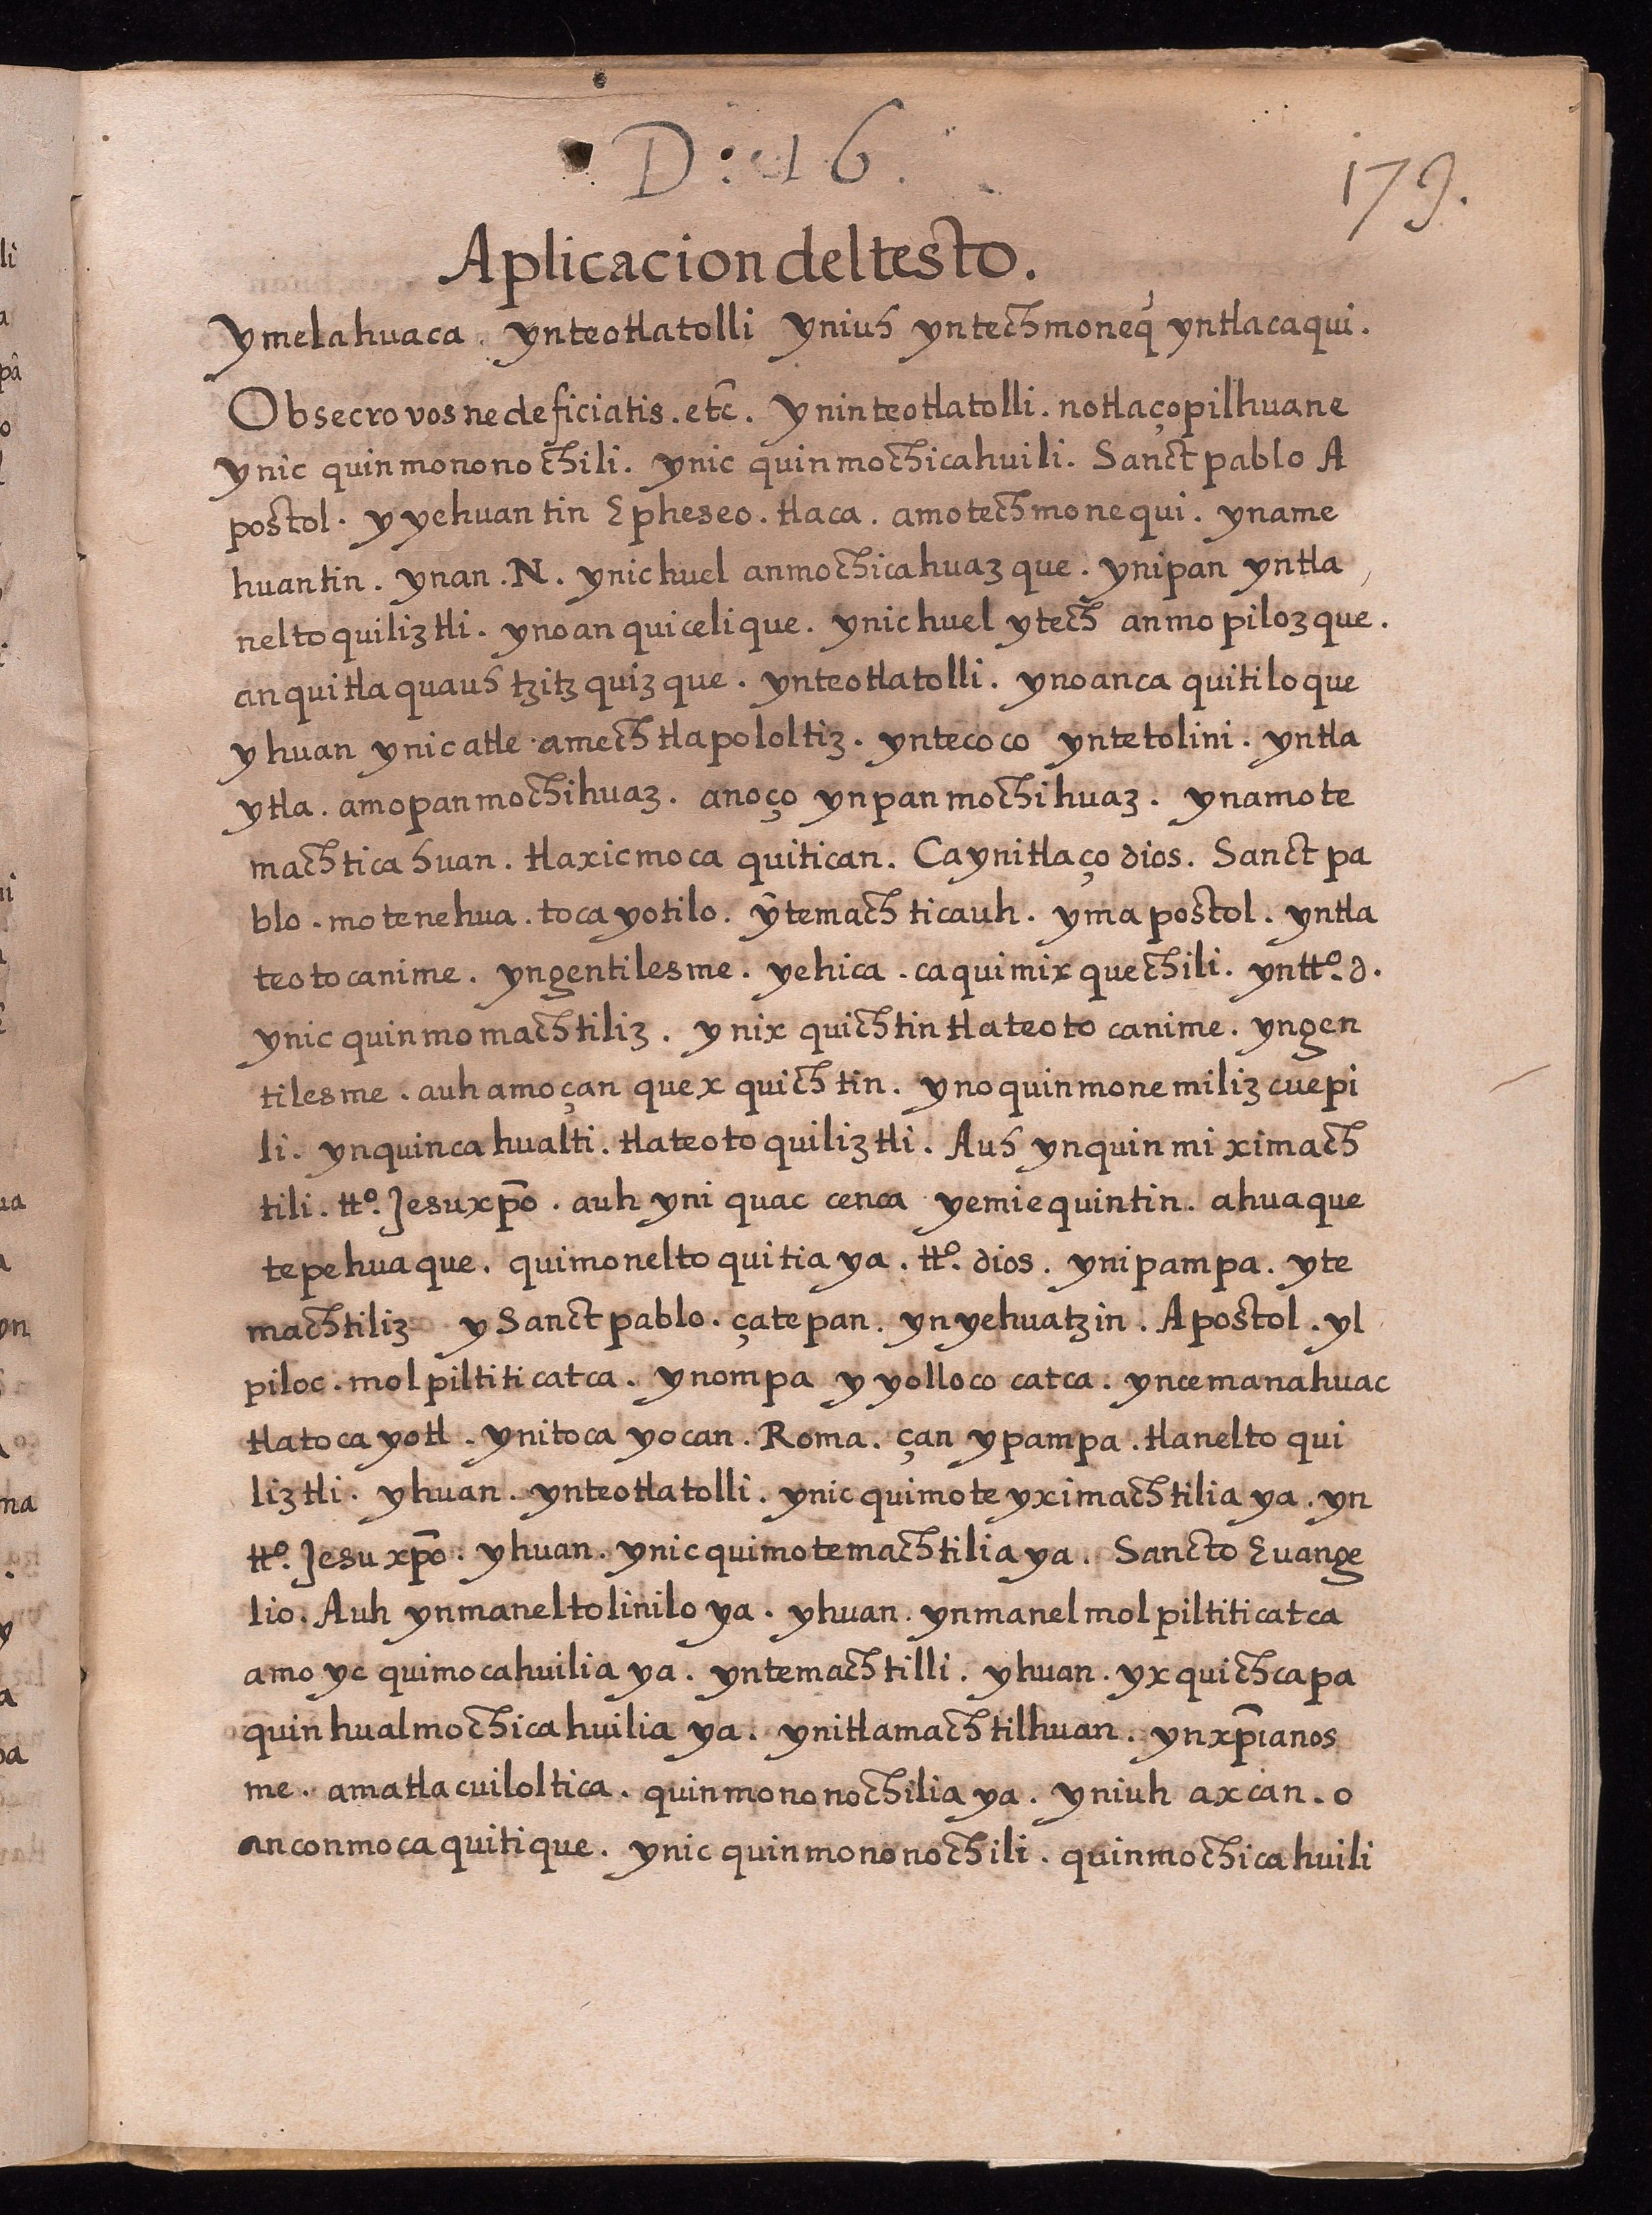 D: 16.
179.
Aplicacion del testo.
Ymelahuaca. ynteotlatolli yniuh yntechmoneq̃ yntlacaqui.
Obsecro vos ne deficiatis. etc̃. Yninteotlatolli. notlaçopilhuane
ynic quinmononochili. ynic quinmochicahuili. Sanct pablo A
postol. y yehuantin Epheseo. tlaca. amotechmonequi. yname
huantin. ynan. N. ynichuel anmochicahuazque. ynipan yntla
neltoquiliztli. ynoanquicelique. ynichuel ytech anmopilozque.
anquitlaquauh tzitzquizque. ynteotlatolli. ynoanca quitiloque
yhuan ynicatle. amechtlapololtiz. yntecoco yntetolini. yntla
ytla. amopanmochihuaz. anoço ynpanmochihuaz. ynamote
machticahuan. tlaxicmoca quitican. Caynitlaço dios. Sanct pa
blo. motenehua. tocayotilo. ỹtemachticauh. ymapostol. yntla
teotocanime. yngentilesme. yehica. caquimixquechili. yntt.º d.
ynic quinmomachtiliz. ynixquichtin tlateotocanime. yngen
tilesme. auh amoçan quexquichtin. ynoquinmonemilizcuepi
li. ynquincahualti. tlateotoquiliztli. Auh ynquinmiximach
tili. tt.º Jesuxp̃o. auh yniquac cenca yemiequintin. ahuaque
tepehuaque. quimoneltoquitiaya. tt.º dios. ynipampa. yte
machtiliz y Sanct pablo. çatepan. ynyehuatzin. Apostol. yl
piloc. molpiltiticatca. ynompa y yolloco catca. yncemanahuac
tlatocayotl. ynitocayocan. Roma. çan ypampa. tlaneltoqui
liztli. yhuan. ynteotlatolli. ynic quimoteyximachtiliaya. yn
tt.º Jesu xp̃o. yhuan. ynic quimotemachtiliaya. Sancto Euange
lio. Auh ynmaneltoliniloya. yhuan. ynmanelmolpiltiticatca
amo yc quimocahuiliaya. yntemachtilli. yhuan. yxquichcapa
quinhualmochicahuiliaya. ynitlamachtilhuan. ynxp̃ianos
me. amatlacuiloltica. quinmononochiliaya. yniuh axcan. o
anconmocaquitique. ynic quinmononochili. quinmochicahuili